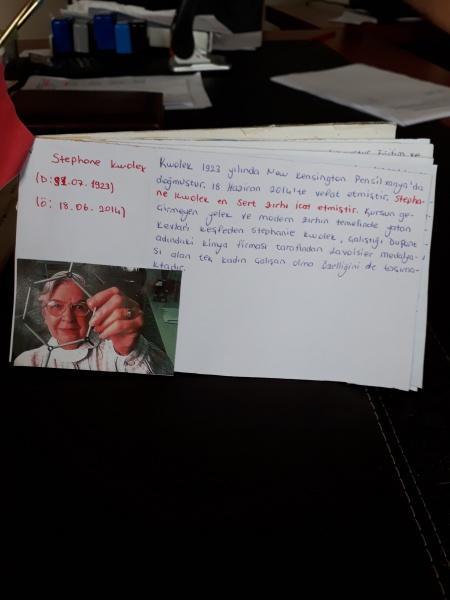 Stephone Kwolek
(D: 31.07.1923)
(Ö: 18.06.2014)
Kwolek 1923 yılında New Kensington Pensilvanya'da
doğmuştur. 18 Haziran 2014'te vefat etmiştir. Stepha-
ne Kwolek en Sert zırhı icat etmiştir. Kurşun ge-
çirmeyen yelek ve modern zırhın temelinde yatan
Kevları keşfeden Stephanie Kwolek, çalıştığı Dupont
adındaki kimya firması tarafından Lavoisier madalya-
sı alan tek kadın çalışan olma özelliğini de taşıma-
ktadır.